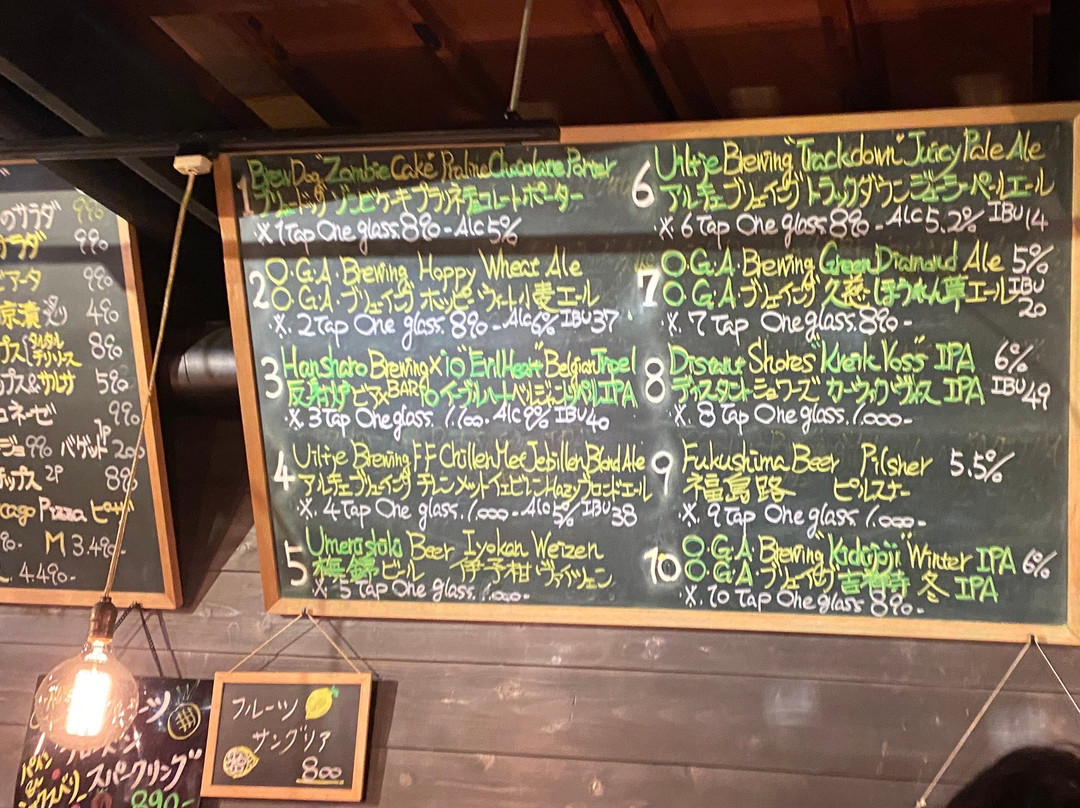 のサラダ 990
ラダ 990
アータ 990
京漬 490
890
590
コネーゼ 990
990 バゲット 1P 200
ポップス 2P 890
cago Pizza ピザ
M 3.490-
4.490-
1 BrewDog "Zombie Cake" Praline Chocolate Porter
ブリュードッグ ゾンビケーキ プラリネチョコレートポーター
※ 1 Tap One glass. 890- Alc 5%
2 O.G.A. Brewing Hoppy Wheat Ale
O.G.A. ブリュイング ホッピーウィート小麦エール
※. 2 Tap One glass. 890- Alc 6% IBU 37
3 Hansharo Brewing × io "Erl Heart" Belgian Tripel
反射炉ビヤ×BAR io イーグルハート ベルジャントリペル IPA
※. 3 Tap One glass. 1.100- Alc 9% IBU 40
4 Uiltje Brewing FF Chillen Met Jebillen Blond Ale
アルチェブリュイング チレンメットイェビレン Hazy ブロンドエール
※. 4 Tap One glass. 1.000- Alc 5% IBU 38
5 Umenishiki Beer Iyokan Weizen
梅錦ビール 伊予柑 ヴァイツェン
※. 5 Tap One glass. 1.000-
6 Uiltje Brewing "Trackdown" Juicy Pale Ale
アルチェブリュイング トラックダウン ジューシーペールエール
※. 6 Tap One glass. 890- Alc 5.2% IBU 14
7 O.G.A. Brewing Green Diamond Ale 5%
O.G.A. ブリュイング 久慈ほうれん草エール IBU 20
※. 7 Tap One glass. 890-
8 Distant Shores "Kveik Voss" IPA 6%
ディスタントショワーズ カーウィクヴォス IPA IBU 49
※. 8 Tap One glass. 1.000-
9 Fukushima Beer Pilsner 5.5%
福島路 ピルスナー
※. 9 Tap One glass. 1.000-
10 O.G.A. Brewing "Kichijoji" Winter IPA 6%
O.G.A. ブリュイング 吉祥寺 冬 IPA
※. 10 Tap One glass. 890-
フルーツ
サングリア
800
スパークリング
890-